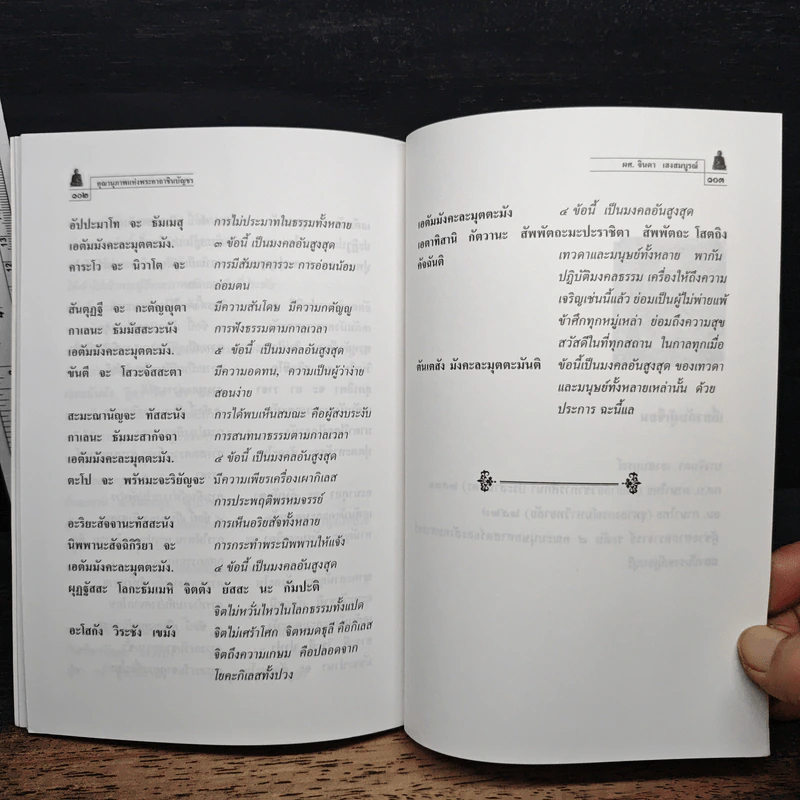 คุณานุภาพแห่งพระคาถาชินบัญชร
๑๐๒
อัปปะมาโท จะ ธัมเมสุ การไม่ประมาทในธรรมทั้งหลาย
เอตัมมังคะละมุตตะมัง. ๓ ข้อนี้ เป็นมงคลอันสูงสุด
คาระโว จะ นิวาโต จะ การมีสัมมาคารวะ การอ่อนน้อม
ถ่อมตน
สันตุฏฐี จะ กะตัญญุตา มีความสันโดษ มีความกตัญญู
กาเลนะ ธัมมัสสะวะนัง การฟังธรรมตามกาลเวลา
เอตัมมังคะละมุตตะมัง. ๕ ข้อนี้ เป็นมงคลอันสูงสุด
ขันตี จะ โสวะจัสสะตา มีความอดทน, ความเป็นผู้ว่าง่าย
สอนง่าย
สะมะณานัญจะ ทัสสะนัง การได้พบเห็นสมณะ คือผู้สงบระงับ
กาเลนะ ธัมมะสากัจฉา การสนทนาธรรมตามกาลเวลา
เอตัมมังคะละมุตตะมัง. ๔ ข้อนี้ เป็นมงคลอันสูงสุด
ตะโป จะ พรัหมะจะริยัญจะ มีความเพียรเครื่องเผากิเลส
การประพฤติพรหมจรรย์
อะริยะสัจจานะทัสสะนัง การเห็นอริยสัจทั้งหลาย
นิพพานะสัจฉิกิริยา จะ การกระทำพระนิพพานให้แจ้ง
เอตัมมังคะละมุตตะมัง. ๔ ข้อนี้ เป็นมงคลอันสูงสุด
ผุฏฐัสสะ โลกะธัมเมหิ จิตตัง ยัสสะ นะ กัมปะติ
จิตไม่หวั่นไหวในโลกธรรมทั้งแปด
อะโสกัง วิระชัง เขมัง จิตไม่เศร้าโศก จิตหมดธุลี คือกิเลส
จิตถึงความเกษม คือปลอดจาก
โยคะกิเลสทั้งปวง
ผศ. จินดา เฮงสมบูรณ์
๑๐๓
เอตัมมังคะละมุตตะมัง ๔ ข้อนี้ เป็นมงคลอันสูงสุด
เอตาทิสานิ กัตวานะ สัพพัตถะมะปะราชิตา สัพพัตถะ โสตถิง
คัจฉันติ เทวดาและมนุษย์ทั้งหลาย พากัน
ปฏิบัติมงคลธรรม เครื่องให้ถึงความ
เจริญเช่นนี้แล้ว ย่อมเป็นผู้ไม่พ่ายแพ้
ข้าศึกทุกหมู่เหล่า ย่อมถึงความสุข
สวัสดีในที่ทุกสถาน ในกาลทุกเมื่อ
ตันเตสัง มังคะละมุตตะมันติ ข้อนี้เป็นมงคลอันสูงสุด ของเทวดา
และมนุษย์ทั้งหลายเหล่านั้น ด้วย
ประการ ฉะนี้แล